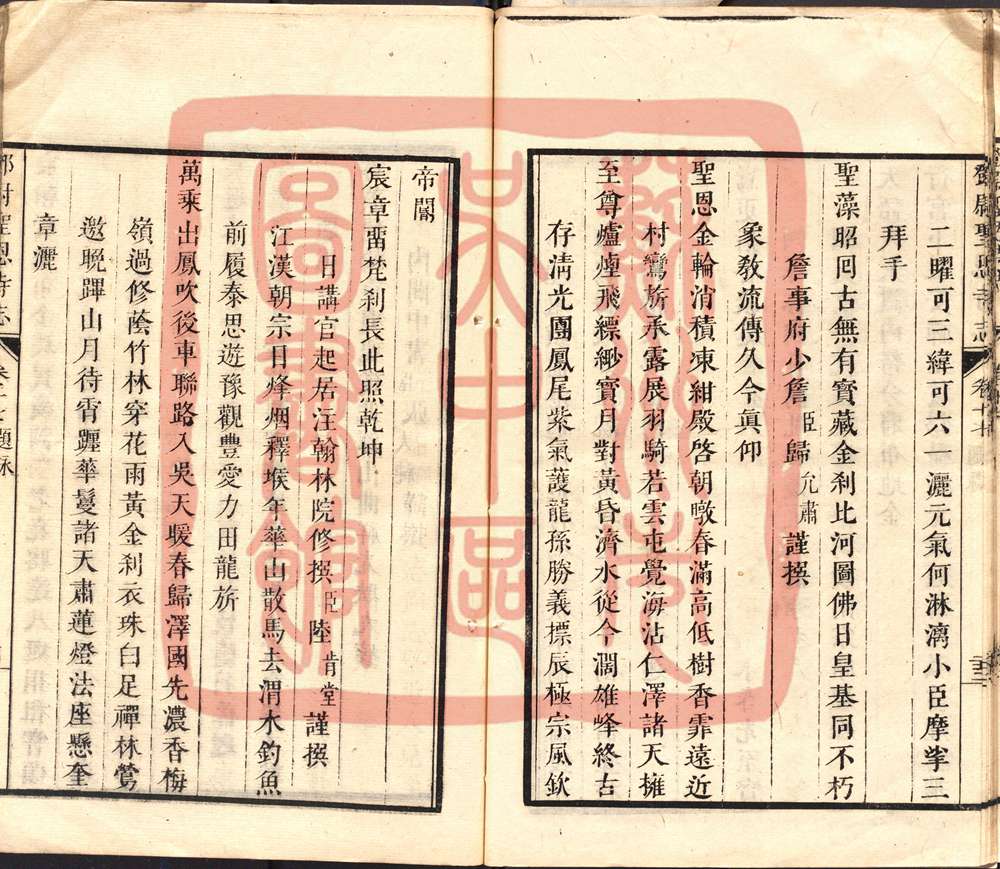 鄧尉聖恩寺志
卷十七
二曜可三緯可六一灑元氣何淋漓小臣摩挲三
拜手
聖藻昭回古無有寶藏金刹比河圖佛日皇基同不朽
詹事府少詹臣歸允肅謹撰
象教流傳久今眞仰
聖恩金輪消積凍紺殿啓朝暾春滿高低樹香霏遠近
村鸞旂承露展羽騎若雲屯覺海沾仁澤諸天擁
至尊爐煙飛縹緲寶月對黃昏濟水從今濶雄峰終古
存淸光團鳳尾紫氣護龍孫勝義摽辰極宗風欽
帝闇
宸章畱梵刹長此照乾坤
日講官起居注翰林院修撰臣陸肯堂謹撰
江漢朝宗日烽烟釋堠年華山散馬去渭水釣魚
前履泰思遊豫觀豐愛力田龍旂
萬乘出鳳吹後車聯路入吳天暖春歸澤國先濃香梅
嶺過修蔭竹林穿花雨黃金刹衣珠白足禪林鶯
邀晩蹕山月待宵躔華鬘諸天肅蓮燈法座懸奎
章灑
題詠
吳中區
圖書館